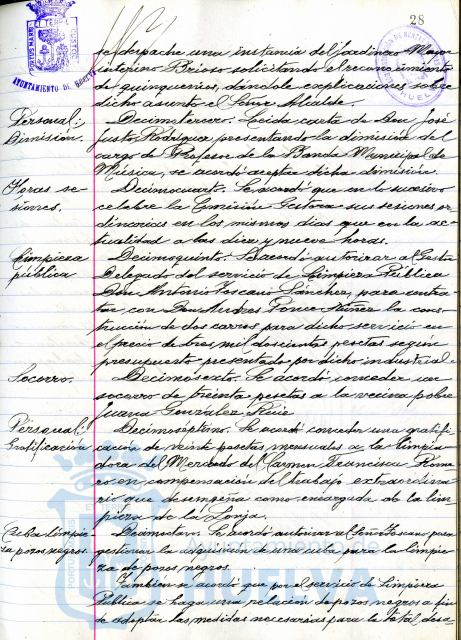 28
se despache una instancia del Jardinero Mayor
interino Brioso solicitando el reconocimiento
de quinquenios, dándole explicaciones sobre
dicho asunto el Señor Alcalde.
Personal:
Dimisión.
Decimotercero. Leida carta de Don José
Justo Rodríguez, presentando la dimisión del
cargo de Profesor de la Banda Municipal de
Música, se acordó aceptar dicha dimisión.
Horas se
siones.
Decimocuarto. Se acordó que en lo sucesivo
celebre la Comisión Gestora sus sesiones or
dinarias en los mismos días que en la ac-
tualidad a las diez y nueve horas.
Limpieza
pública
Decimoquinto. Se acordó autorizar al Gestor
Delegado del servicio de Limpieza Pública
Don Antonio Toscano Sánchez, para contra
tar con Don Andres Ponce Núñez la cons-
trucción de dos carros para dicho servicio en
el precio de tres mil doscientas pesetas según
presupuesto presentado por dicho industrial.
Socorro.
Decimosexto. Se acordó conceder un
socorro de treinta pesetas a la vecina pobre
Juana González
Personal
Gratificación
Decimoséptimo. Se acordó conceder una gratifi-
cación de veinte pesetas mensuales a la limpia
dora del Mercado del Carmen Francisca Rome
ro en compensación del trabajo extraordina
rio que desempeña como encargada de la lim
pieza de la Lonja.
Cuba limpie
za pozos negros.
Decimoctavo. Se acordó autorizar al Señor Toscano para
gestionar la adquisición de una cuba para la limpie
za de pozos negros.
También se acordó que por el servicio de Limpieza
Pública se haga una relación de pozos negros a fin
de adoptar las medidas necesarias para la total desa
AYUNTAMIENTO DE HUELVA
PORTUS MARIS
ET TERRE
CUSTODIA
HUELVA